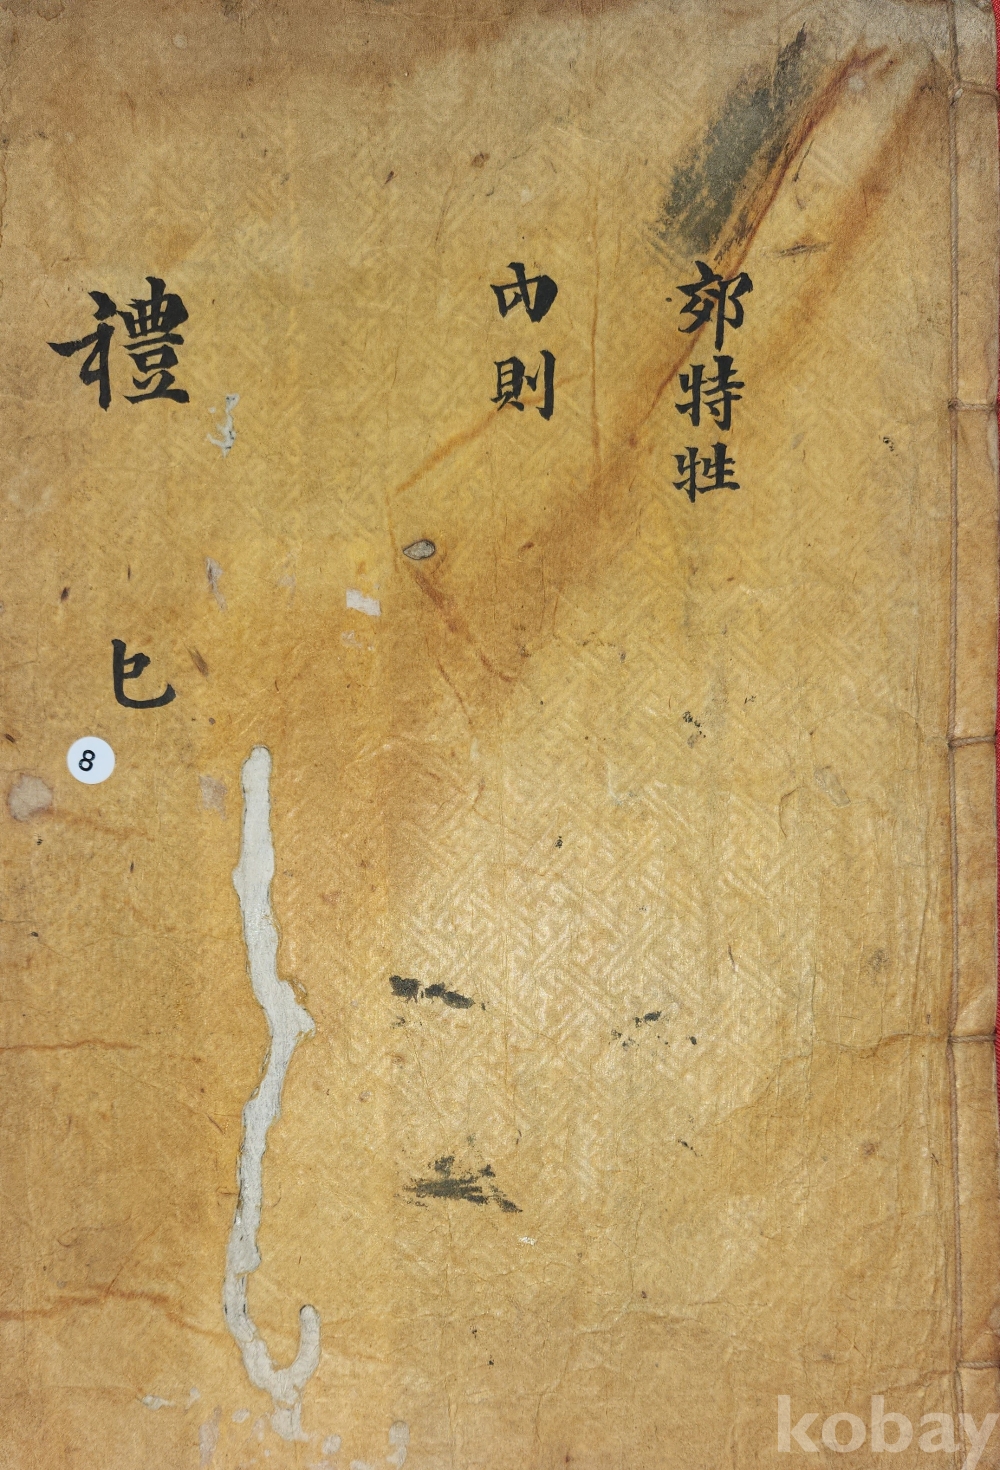 郊特牲
內則
禮 巳
8
kobay